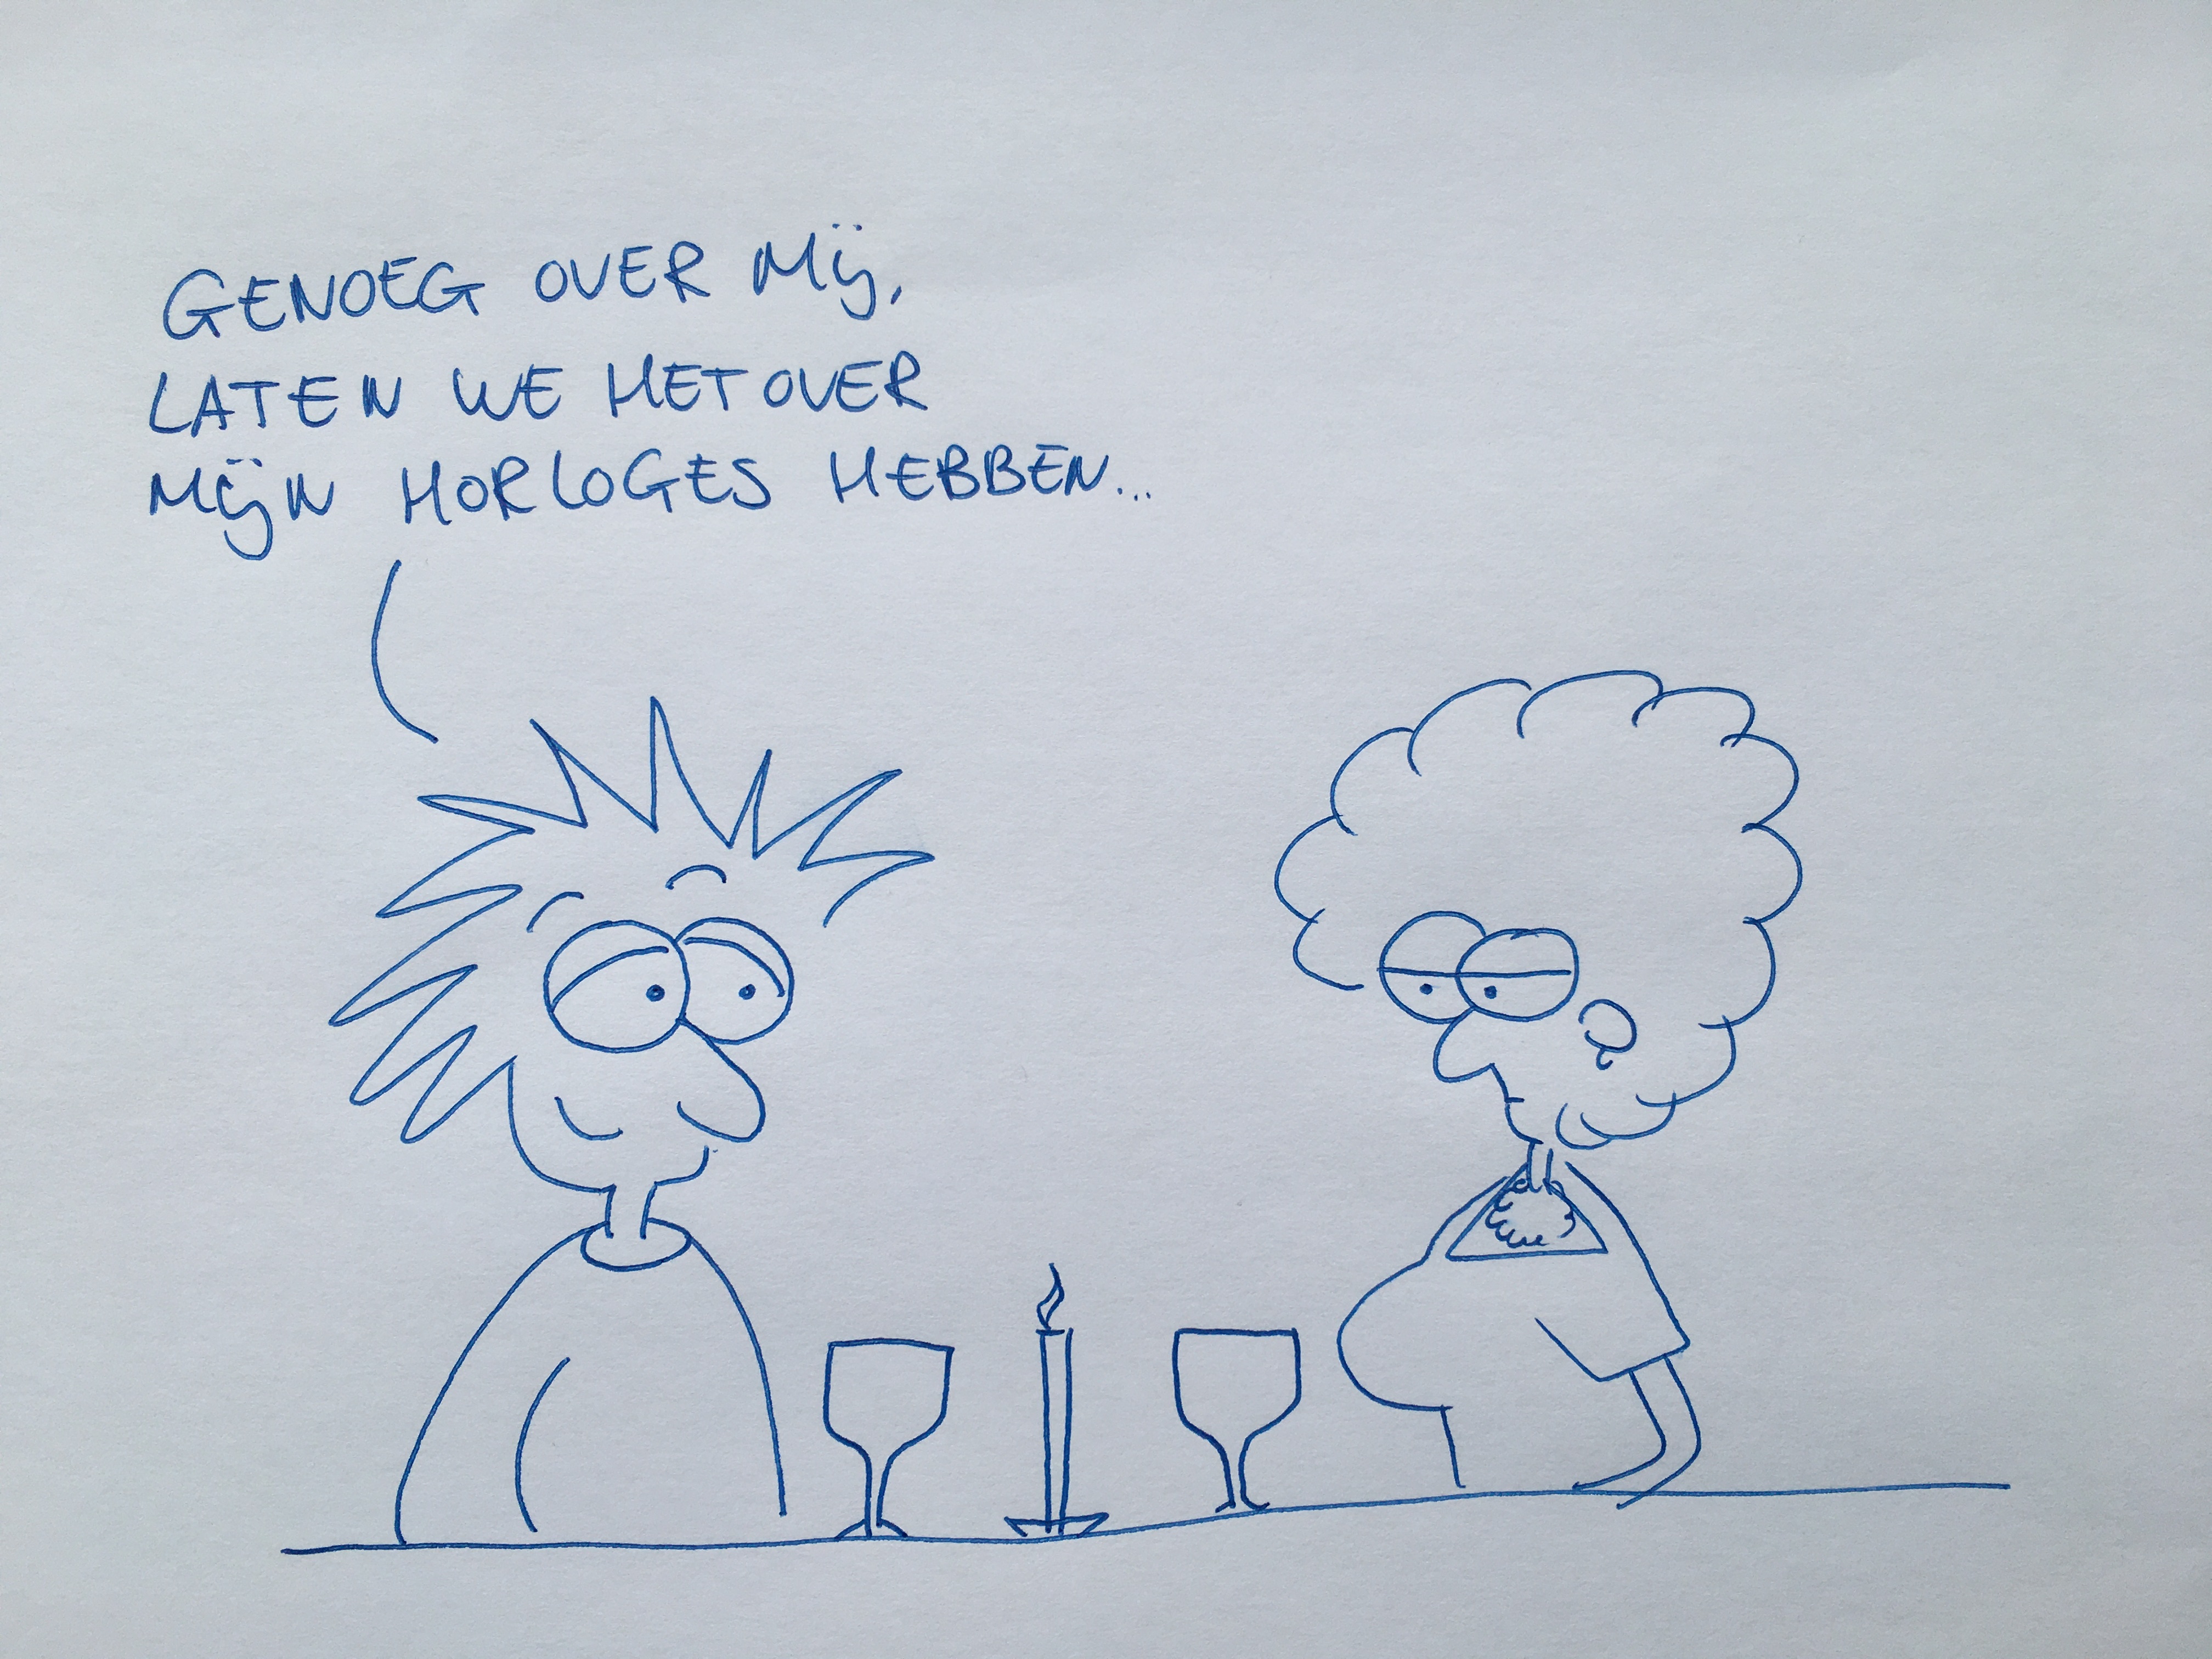 GENOEG OVER MIJ,
LATEN WE HET OVER
MIJN HORLOGES HEBBEN...